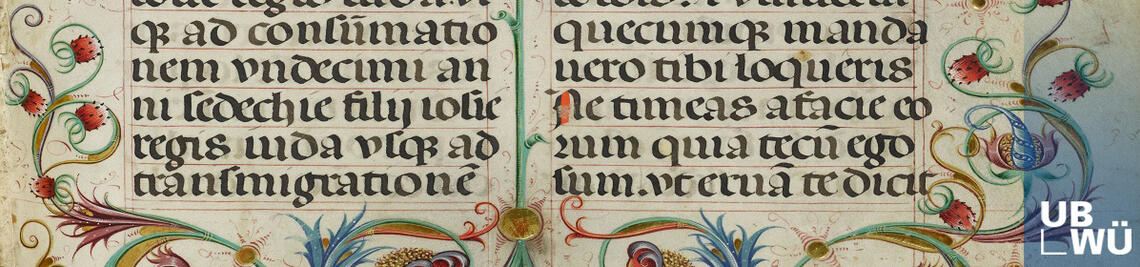 qꝫ ad consūmatio
nem vndecimi an
ni sedechie filij iosie
regis iuda vsqꝫ ad
transmigrationē
quecumqꝫ manda
uero tibi loqueris
Ne timeas a facie eo
rum quia tecū ego
sum. vt eruā te dicit
UB
WÜ